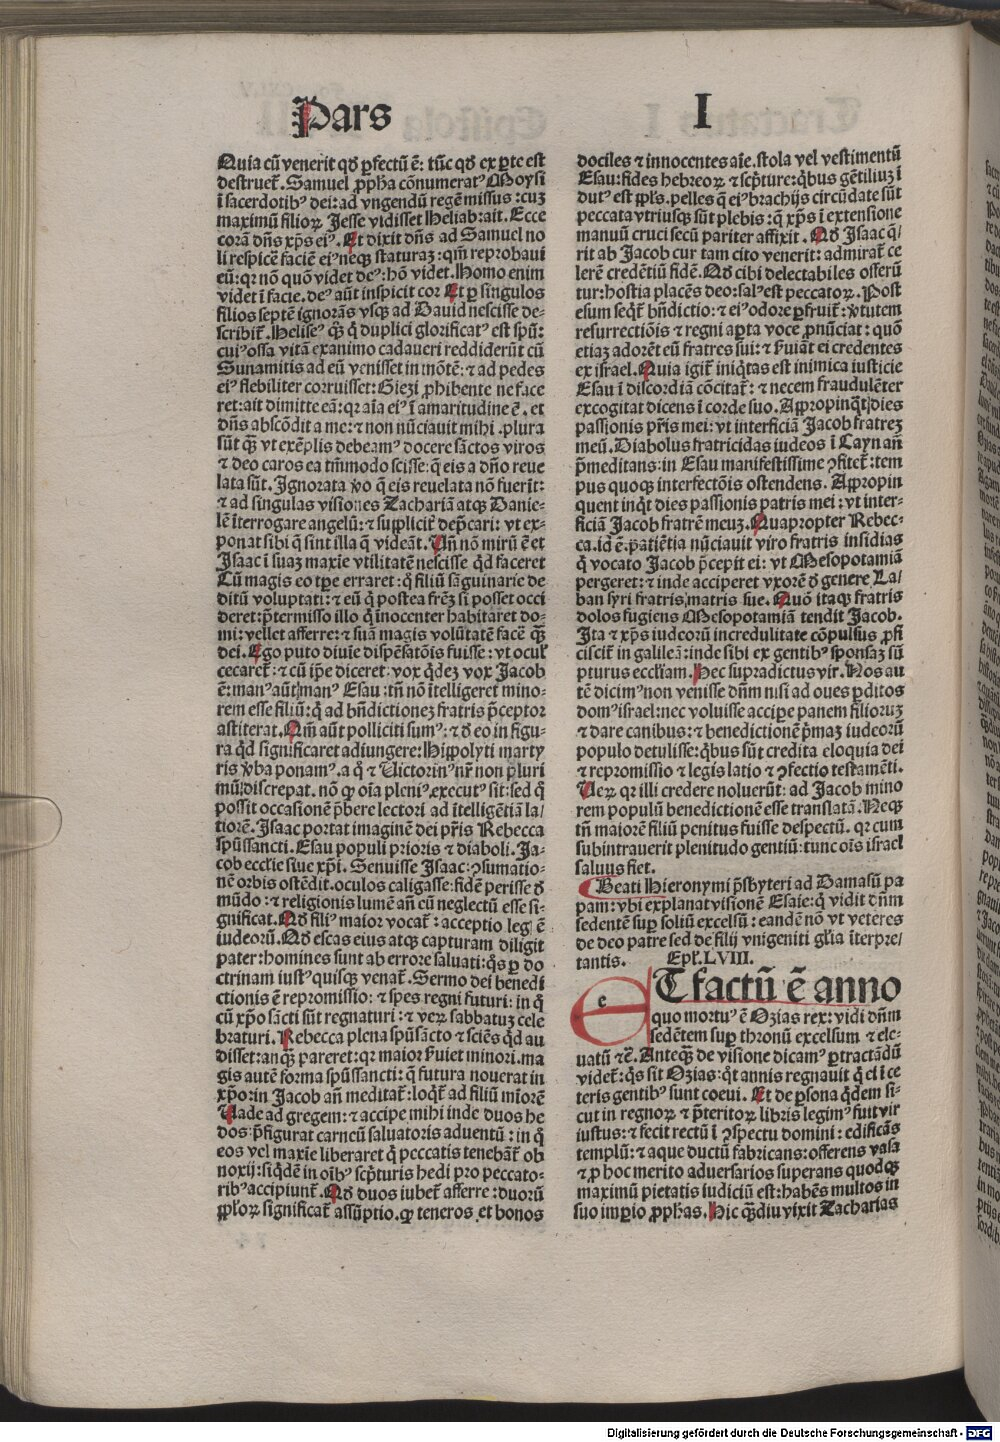 Pars I
Quia cū venerit qd̄ ꝑfectū ē: tūc qd̄ ex ꝑte est
destruet᷑. Samuel ꝓpħa cōnumerat⁹ Moysi
ī sacerdotib⁹ dei: ad vngendū regē missus: cuꝫ
maximū filioꝝ Jesse vidisset Heliab: ait. Ecce
corā dn̄s xp̄s ei⁹. Et dixit dn̄s ad Samuel no
li respicē faciē ei⁹ neqꝫ staturaꝫ: qm̄ reprobaui
eū: qr nō quō videt de⁹: hō videt. Homo enim
videt ī facie. de⁹ aūt inspicit cor Et ꝑ singulos
filios septē ignorās vsqꝫ ad Dauid nescisse de-
scribit᷑. Helise⁹ qꝫ̄ q̄ duplici glorificat⁹ est spū:
cui⁹ ossa vitā exanimo cadaueri reddiderūt cū
Sunamitis ad eū venisset in mōtē: ⁊ ad pedes
ei⁹ flebiliter corruisset: Giezi ꝓhibente ne face
ret: ait dimitte eā: qr aīa ei⁹ ī amaritudine ē. et
dn̄s abscōdit a me: ⁊ non nūciauit mihi. plura
sūt qꝫ̄ vt exēplis debeam⁹ docere sāctos viros
⁊ deo caros ea tm̄modo scisse: q̄ eis a dn̄o reue
lata sūt. Ignorata ꝟo q̄ eis reuelata nō fuerīt:
⁊ ad singulas visiones Zachariā atqꝫ Danie-
lē īterrogare angelū: ⁊ supplicit᷑ dep̄cari: vt ex-
ponat sibi q̄ sint illa q̄ videāt. Vn̄ nō mirū ē et
Isaac ī suaꝫ maxīe vtilitatē nescisse qd̄ faceret
Tū magis eo tꝑe erraret: q̄ filiū sāguinarie de
ditū voluptati: ⁊ eū q̄ postea fr̄eꝫ si posset occi
deret: p̄termisso illo q̄ inocenter habitaret do-
mi: vellet afferre: ⁊ suā magis volūtatē facē qꝫ̄
dei. Ego puto diuīe dispēsatōis fuisse: vt ocul᷑
cecaret᷑: ⁊ cū ip̄e diceret: vox qdeꝫ vox Jacob
ē: man⁹ aūt man⁹ Esau: tn̄ nō ītelligeret mino-
rem esse filiū: q̄ ad bn̄dictioneꝫ fratris p̄ceptor
astiterat. Qm̄ aūt polliciti sum⁹: ⁊ đ eo in figu-
ra qd̄ significaret adiungere: Hippolyti marty
ris ꝟba ponam⁹. a q̄ ⁊ Victorin⁹ nr̄ non pluri
mū discrepat. nō qꝫ oīa pleni⁹ execut⁹ sit: sed q̄
possit occasionē p̄bere lectori ad ītelligētiā la/
tiorē. Isaac portat imaginē dei pr̄is Rebecca
spūssancti. Esau populi prioris ⁊ diaboli. Ja-
cob ecclīe siue xp̄i. Senuisse Isaac: ꝯsumatio-
nē orbis ostēdit. oculos caligasse: fidē perisse đ
mūdo: ⁊ religionis lumē an̄ cū neglectū esse si-
gnificat. Qđ fili⁹ maior vocat᷑: acceptio leḡ ē
iudeorū. Qđ escas eius atqꝫ capturam diligit
pater: homines sunt ab errore saluati: q̄s ꝑ do
ctrinam iust⁹ quisqꝫ venat᷑. Sermo dei benedi
ctionis ē repromissio: ⁊ spes regni futuri: in q̄
cū xp̄o sācti sūt regnaturi: ⁊ veꝝ sabbatuꝫ cele
braturi. Rebecca plena spūsācto ⁊ sciēs qd̄ au
disset: anq̄ pareret: qr maior ẜuiet minori. ma
gis autē forma spūssancti: q̄ futura nouerat in
xp̄o: in Jacob an̄ meditat᷑: loqt᷑ ad filiū mīorē
Vade ad gregem: ⁊ accipe mihi inde duos he
dos: p̄figurat carneū saluatoris aduentū: in q̄
eos vel maxie liberaret q̄ peccatis tenebāt᷑ ob
noxij: siqdē in oīb⁹ scp̄turis hedi pro peccato-
rib⁹ accipiunt᷑. Qđ duos iubet᷑ afferre: duorū
ppl̄oꝝ significat᷑ assūptio. qꝫ teneros et bonos
dociles ⁊ innocentes aīe. stola vel vestimentū
Esau: fides hebreoꝝ ⁊ scp̄ture: qbus gētiliuꝫ ī
dut⁹ est ppl̄s. pelles q̄ ei⁹ brachijs circūdate sūt
peccata vtriusqꝫ sūt plebis: q̄ xp̄s ī extensione
manuū cruci secū pariter affixit. Qđ Isaac q̄/
rit ab Jacob cur tam cito venerit: admirat᷑ ce
lerē credētiū fidē. Qđ cibi delectabiles offerū
tur: hostia placēs deo: sal⁹ est peccatoꝝ. Post
esum seqt᷑ bn̄dictio: ⁊ ei⁹ odore ꝑfruit᷑: ꝟtutem
resurrectiōis ⁊ regni aꝑta voce ꝓnūciat: quō
etiaꝫ adorēt eū fratres sui: ⁊ ẜuiāt ei credentes
ex israel. Quia igit᷑ iniqtas est inimica iusticie
Esau ī discordiā cōcitat᷑: ⁊ necem fraudulēter
excogitat dicens ī corde suo. Appropinqt dies
passionis pr̄is mei: vt interficiā Jacob fratreꝫ
meū. Diabolus fratricidas iudeos ī Cayn an̄
p̄meditans: in Esau manifestissime ꝯfitet᷑: tem
pus quoqꝫ interfectōis ostendens. Appropin
quent inqt dies passionis patris mei: vt inter-
ficiā Jacob fratrē meuꝫ. Quapropter Rebec-
ca. id ē. patiētia nūciauit viro fratris insidias
q̄ vocato Jacob p̄cepit ei: vt Mesopotamiā
pergeret: ⁊ inde acciperet vxorē đ genere La/
ban syri fratris matris sue. Quō itaqꝫ fratris
dolos fugiens Mesopotamiā tendit Jacob.
Ita ⁊ xp̄s iudeorū incredulitate cōpulsus ꝓfi
ciscit᷑ in galileā: inde sibi ex gentib⁹ sponsaꝫ sū
pturus eccliam. Hec supradictus vir. Nos au
tē dicim⁹ non venisse dn̄m nisi ad oues ꝑditos
dom⁹ israel: nec voluisse accipe panem filioruꝫ
⁊ dare canibus: ⁊ benedictionē p̄maꝫ iudeorū
populo detulisse: qbus sūt credita eloquia dei
⁊ repromissio ⁊ legis latio ⁊ ꝯfectio testamēti.
Veꝝ qr illi credere noluerūt: ad Jacob mino
rem populū benedictionē esse translatā. Neqꝫ
tn̄ maiorē filiū penitus fuisse despectū. qr cum
subintrauerit plenitudo gentiū: tunc oīs israel
saluus fiet.
Beati Hieronymi p̄sbyteri ad Damasū pa
pam: vbi explanat visionē Esaie: q̄ vidit dn̄m
sedentē suꝑ soliū excelsū: eandē nō vt veteres
de deo patre sed de filij vnigeniti gl̄ia īterpre/
tantis. Epl᷑. LVIII.
e
ET factū ē anno
quo mortu⁹ ē Ozias rex: vidi dn̄m
sedētem suꝑ thronū excelsum ⁊ ele-
uatū ⁊c̄. Anteqꝫ̄ de visione dicam⁹ ꝑtractādū
videt᷑: q̄s sit Ozias: q̄t annis regnauit q̄ ei ī ce
teris gentib⁹ sunt coeui. Et de ꝑsona qdem si-
cut in regnoꝝ ⁊ p̄teritoꝝ libris legim⁹ fuit vir
iustus: ⁊ fecit rectū ī ꝯspectu domini: edificās
templū: ⁊ aque ductū fabricans: offerens vasa
⁊ ꝓ hoc merito aduersarios superans quodqꝫ
maximū pietatis iudiciū est: habēs multos in
suo imꝑio ꝓpħas. Hic qꝫ̄diu vixit Zacharias
Digitalisierung gefördert durch die Deutsche Forschungsgemeinschaft - DFG